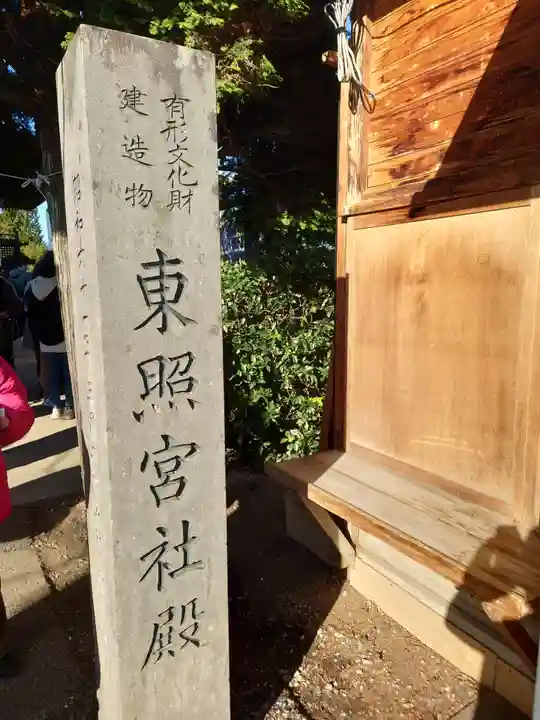 有形文化財
建造物
東照宮社殿